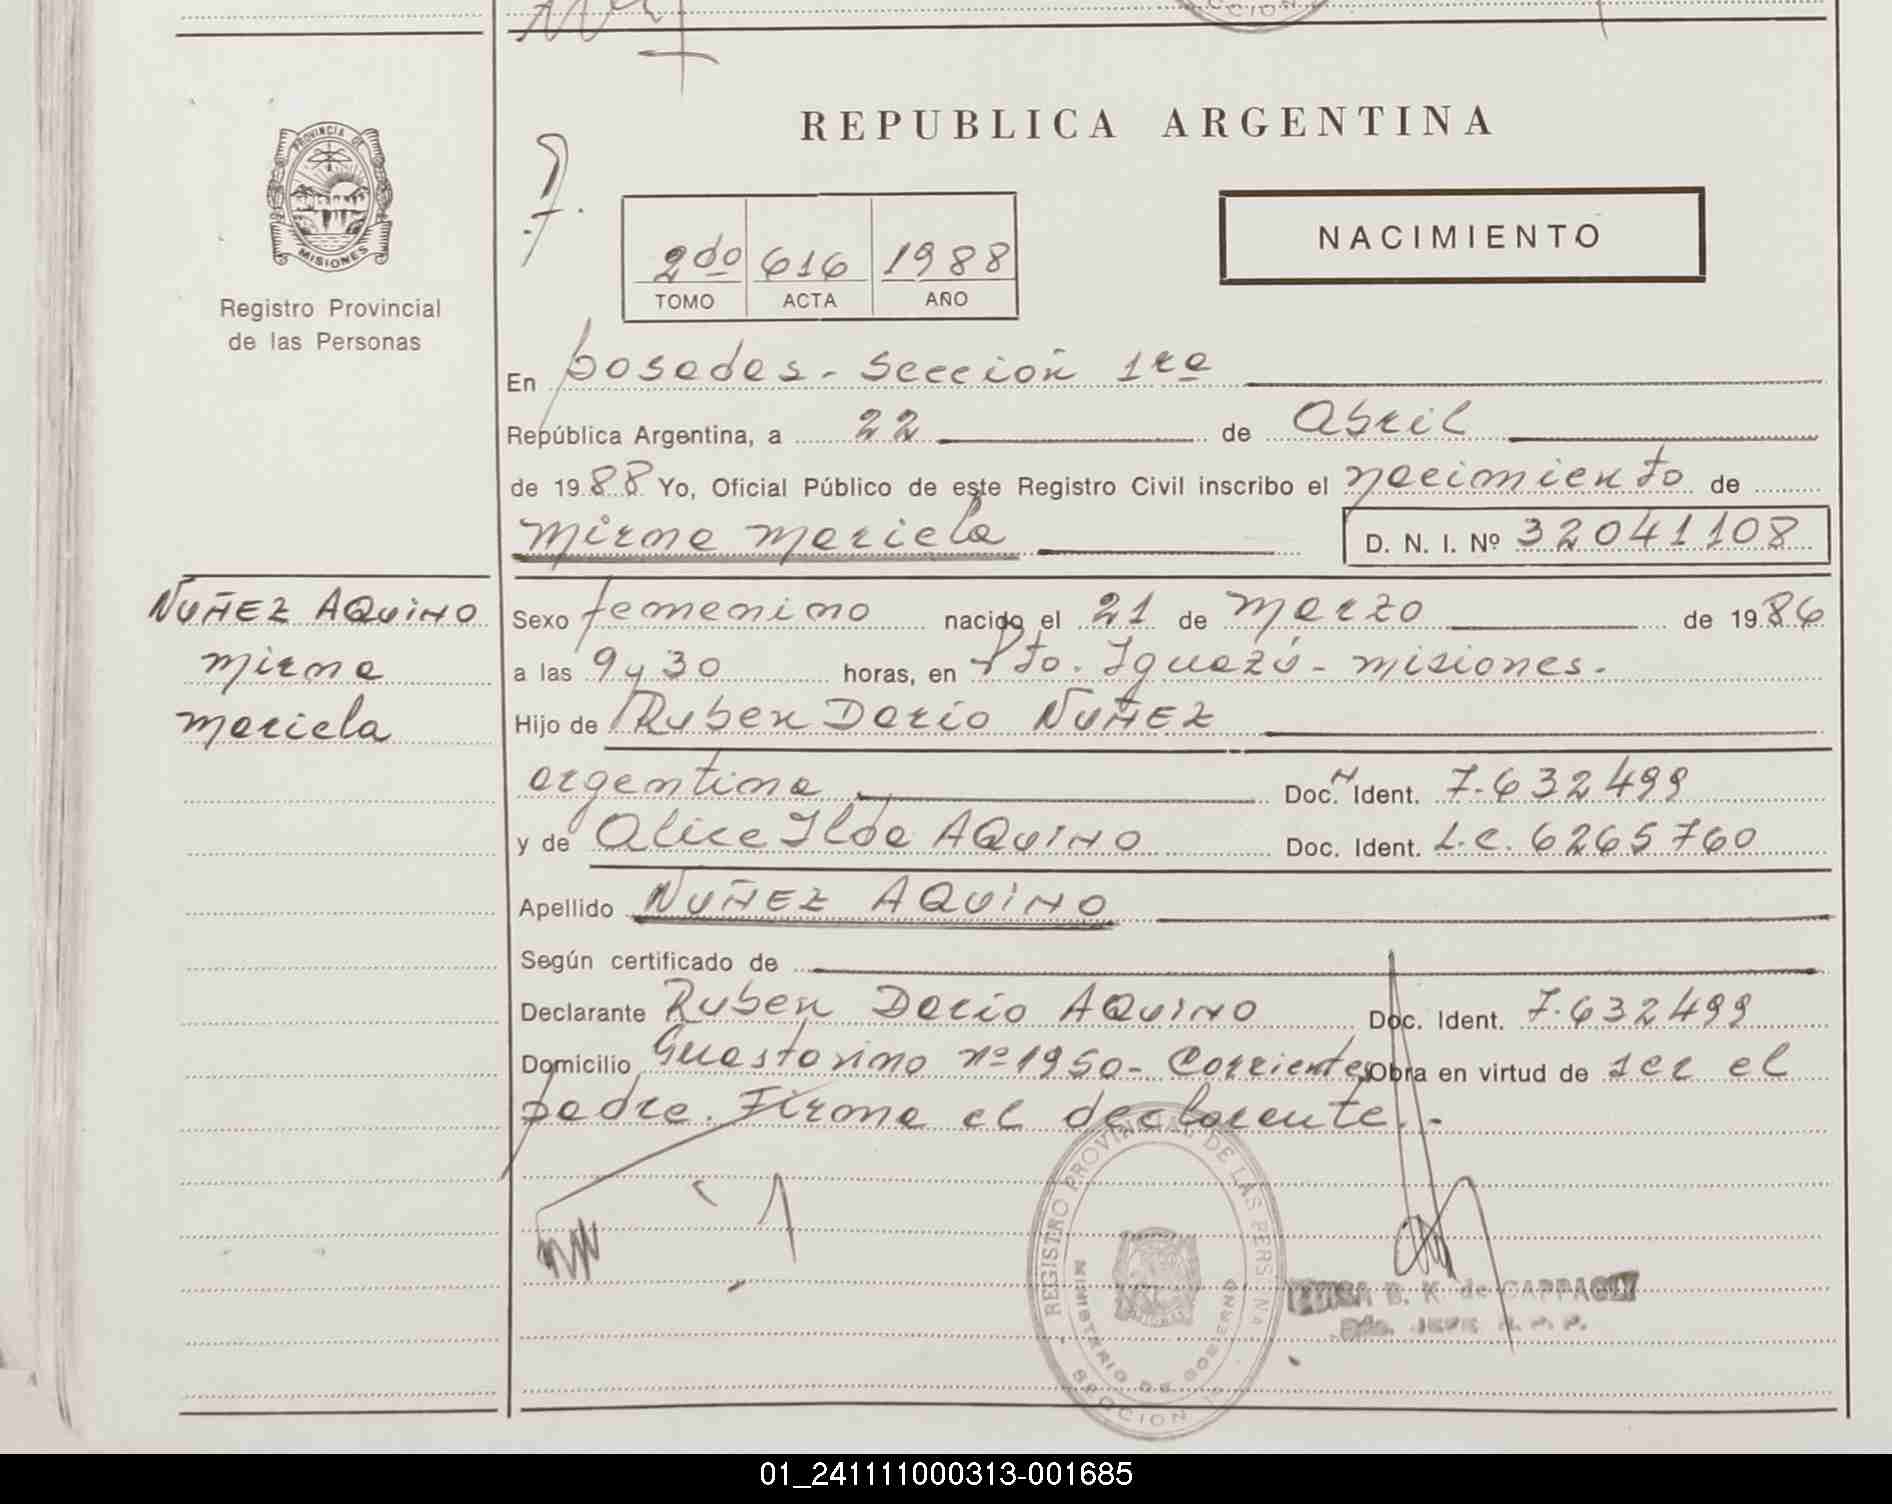 CCION
REPUBLICA ARGENTINA
PROVINCIA DE
MISIONES
Registro Provincial
de las Personas
2do 616 1988
TOMO ACTA AÑO
NACIMIENTO
En posadas - Sección 1ra
República Argentina, a 22 de Abril
de 1988 Yo, Oficial Público de este Registro Civil inscribo el nacimiento de
Mirna Mariela D. N. I. Nº 32041108
NUÑEZ AQUINO
Mirna
Mariela
Sexo femenino nacido el 21 de Marzo de 1986
a las 9 y 30 horas, en Pto. Iguazú - Misiones.
Hijo de Ruben Dario NUÑEZ
argentina Doc. Ident. 7.632499
y de Alice Ilda AQUINO Doc. Ident. L.C. 6265760
Apellido NUÑEZ AQUINO
Según certificado de
Declarante Ruben Dario AQUINO Doc. Ident. 7.632499
Domicilio Guastavino nº 1950 - Corrientes Obra en virtud de ser el
padre. Firma el declarante.-
REGISTRO PROVINCIAL DE LAS PERSONAS
MINISTERIO DE GOBIERNO
SECCION 1
B. K. de
JEFE
01_241111000313-001685